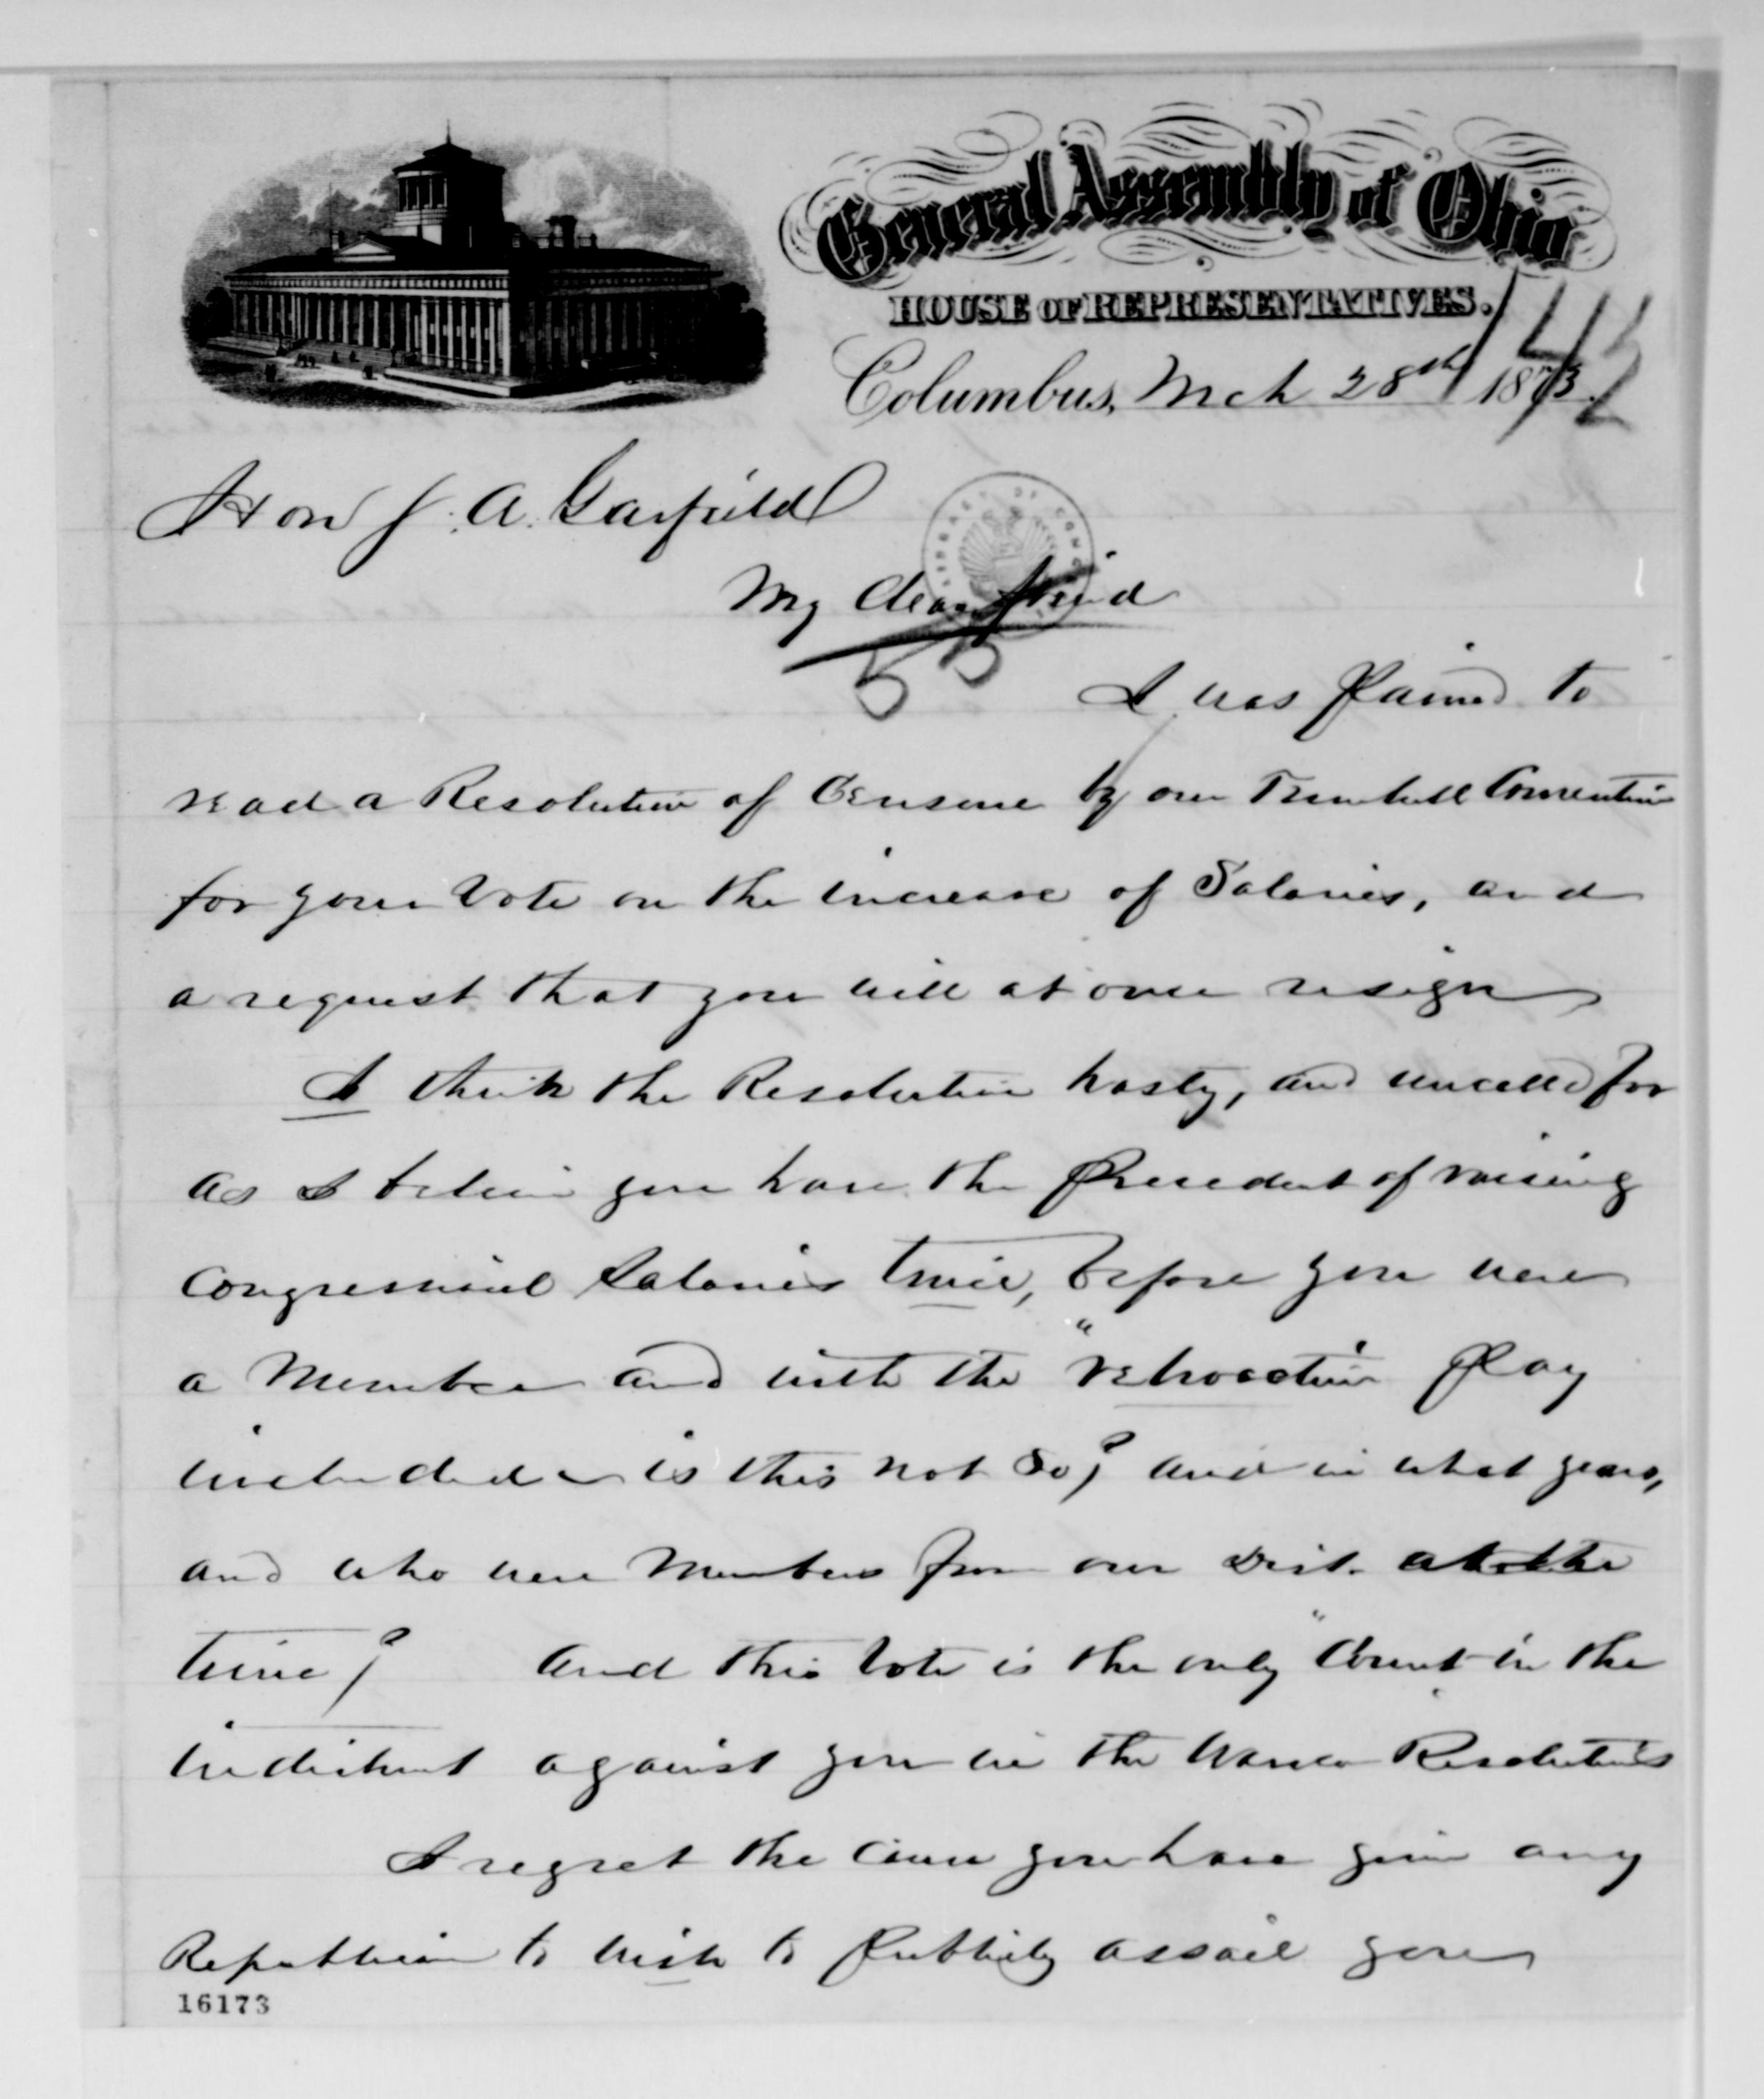 General Assembly of Ohio
HOUSE OF REPRESENTATIVES.
143
Columbus, Mch 28th 1873.
Hon J. A. Garfield
LIBRARY OF CONGRESS
My dear friend
55
I was pained to
read a Resolution of Censure by our Trumbull Convention
for your vote on the increase of Salaries, and
a request that you will at once resign
I think the Resolution hasty, and uncalled for
as I believe you have the precedent of raising
Congressional Salaries twice, before you were
a Member and with the "retroactive pay
included - is this not so? and in what years,
and who were Members from our Dist. at the
time? And this vote is the only "Count in the
indictment against you in the Warren Resolutions
I regret the cause you have given any
Republican to wish to publicly assail you
16173